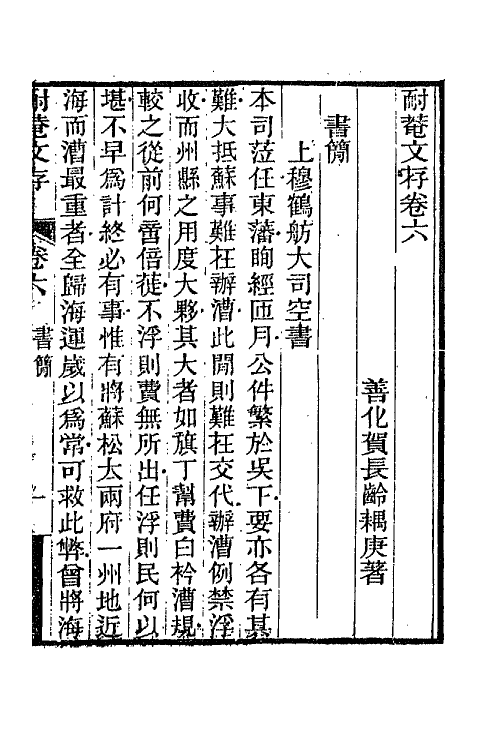 耐菴文存卷六
善化賀長齡耦庚著
書簡
上穆鶴舫大司空書
本司蒞任東藩眴經匝月公件繁於吳下要亦各有其
難大抵蘇事難在辦漕此間則難在交代辦漕例禁浮
收而州縣之用度大夥其大者如旗丁幫費白衿漕規
較之從前何啻倍蓰不浮則費無所出任浮則民何以
堪不早爲計終必有事惟有將蘇松太兩府一州地近
海而漕最重者全歸海運歲以爲常可救此弊曾將海
耐菴文存
卷六
書簡
一